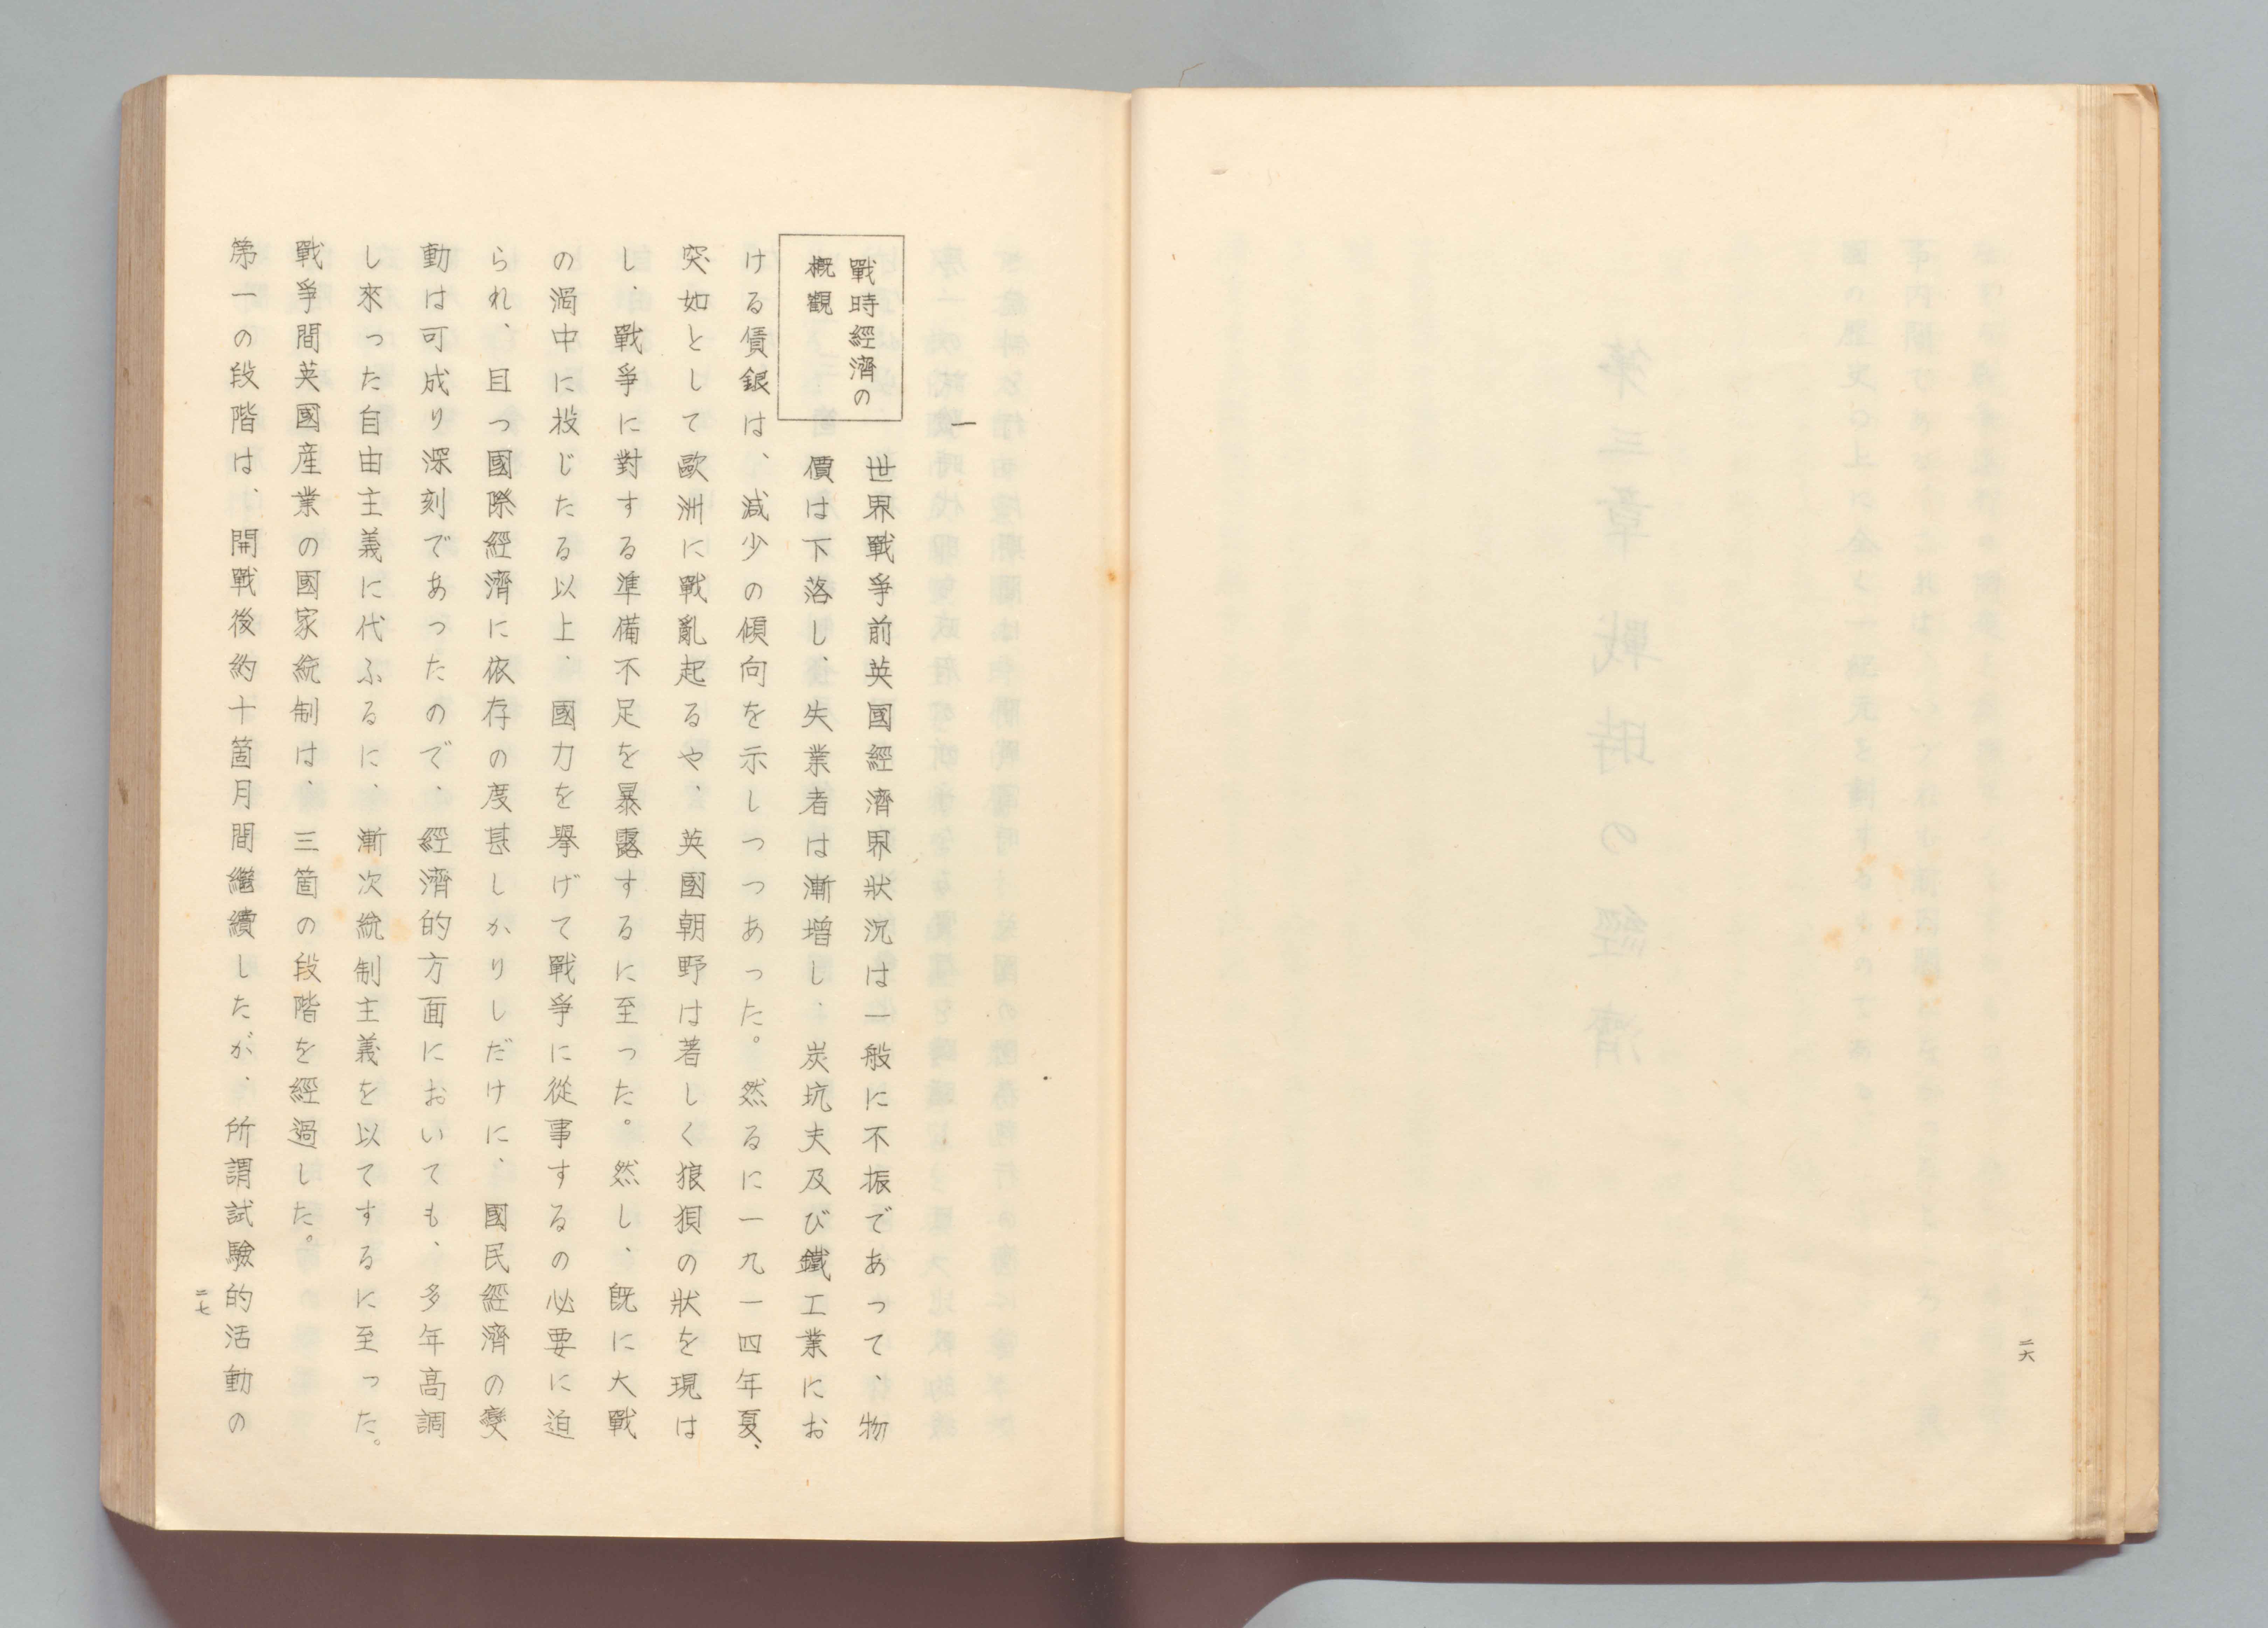 二六
一
戰時經濟の
概觀
世界戰爭前英國經濟界狀況は一般に不振であって、物
價は下落し、失業者は漸增し、炭坑夫及び鐵工業にお
ける賃銀は、減少の傾向を示しつつあった。然るに一九一四年夏、
突如として歐洲に戰亂起るや、英國朝野は著しく狼狽の狀を現は
し、戰爭に對する準備不足を暴露するに至った。然し、既に大戰
の渦中に投じたる以上、國力を擧げて戰爭に從事するの必要に迫
られ、且つ國際經濟に依存の度甚しかりしだけに、國民經濟の變
動は可成り深刻であったので、經濟的方面においても、多年高調
し來った自由主義に代ふるに、漸次統制主義を以てするに至った。
戰爭間英國產業の國家統制は、三箇の段階を經過した。
第一の段階は、開戰後約十箇月間繼續したが、所謂試驗的活動の
二七